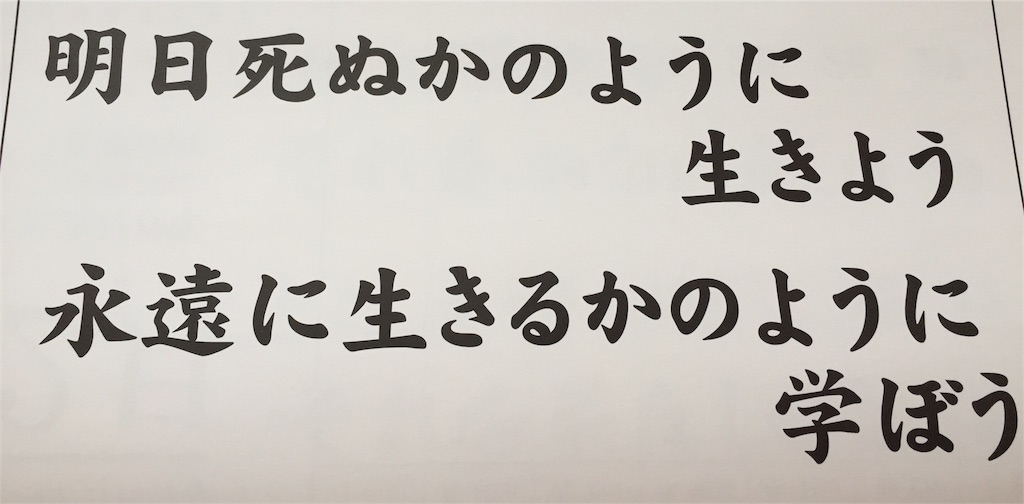 明日死ぬかのように
生きよう
永遠に生きるかのように
学ぼう